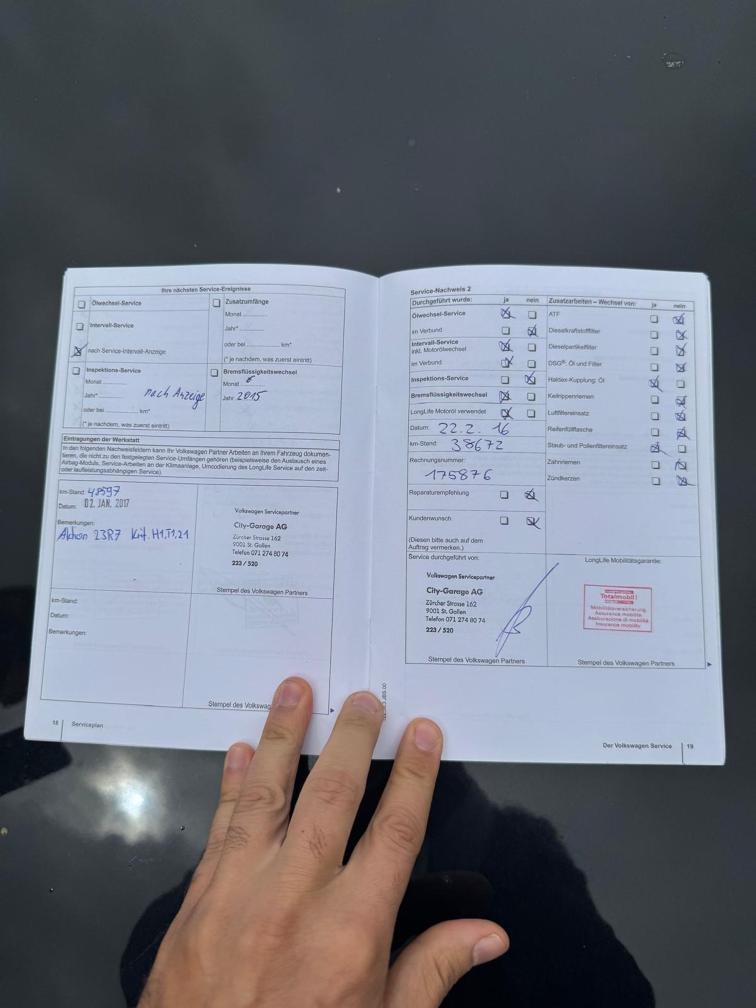 Ihre nächsten Service-Ereignisse
Ölwechsel-Service
Intervall-Service
nach Service-Intervall-Anzeige
Inspektions-Service
Monat
Jahr*
nach Anzeige
oder bei km*
(* je nachdem, was zuerst eintritt)
Zusatzumfänge
Monat
Jahr*
oder bei km*
(* je nachdem, was zuerst eintritt)
Bremsflüssigkeitswechsel
Monat 6
Jahr 2015
Eintragungen der Werkstatt
In den folgenden Nachweisfeldern kann Ihr Volkswagen Partner Arbeiten an Ihrem Fahrzeug dokumen-
tieren, die nicht zu den festgelegten Service-Umfängen gehören (beispielsweise den Austausch eines
Airbag-Moduls, Service-Arbeiten an der Klimaanlage, Umcodierung des LongLife Service auf den zeit-
oder laufleistungsabhängigen Service).
km-Stand: 48597
Datum: 02. JAN. 2017
Bemerkungen:
Aktion 23R7 Krit. H1,J1,21
Volkswagen Servicepartner
City-Garage AG
Zürcher Strasse 162
9001 St. Gallen
Telefon 071 274 80 74
223 / 520
Stempel des Volkswagen Partners
km-Stand:
Datum:
Bemerkungen:
Stempel des Volkswag
18 Serviceplan
Service-Nachweis 2
Durchgeführt wurde: ja nein
Ölwechsel-Service
im Verbund
Intervall-Service
inkl. Motorölwechsel
im Verbund
Inspektions-Service
Bremsflüssigkeitswechsel
LongLife Motoröl verwendet
Datum: 22.2.16
km-Stand: 38672
Rechnungsnummer:
175876
Reparaturempfehlung
Kundenwunsch
(Diesen bitte auch auf dem
Auftrag vermerken.)
Zusatzarbeiten – Wechsel von: ja nein
ATF
Dieselkraftstofffilter
Dieselpartikelfilter
DSG®: Öl und Filter
Haldex-Kupplung: Öl
Keilrippenriemen
Luftfiltereinsatz
Reifenfüllflasche
Staub- und Pollenfiltereinsatz
Zahnriemen
Zündkerzen
Service durchgeführt von:
Volkswagen Servicepartner
City-Garage AG
Zürcher Strasse 162
9001 St. Gallen
Telefon 071 274 80 74
223 / 520
Stempel des Volkswagen Partners
LongLife Mobilitätsgarantie:
Totalmobil!
Mobilitätsversicherung
Assurance mobilité
Assicurazione di mobilità
Insurance mobility
Stempel des Volkswagen Partners
Der Volkswagen Service 19